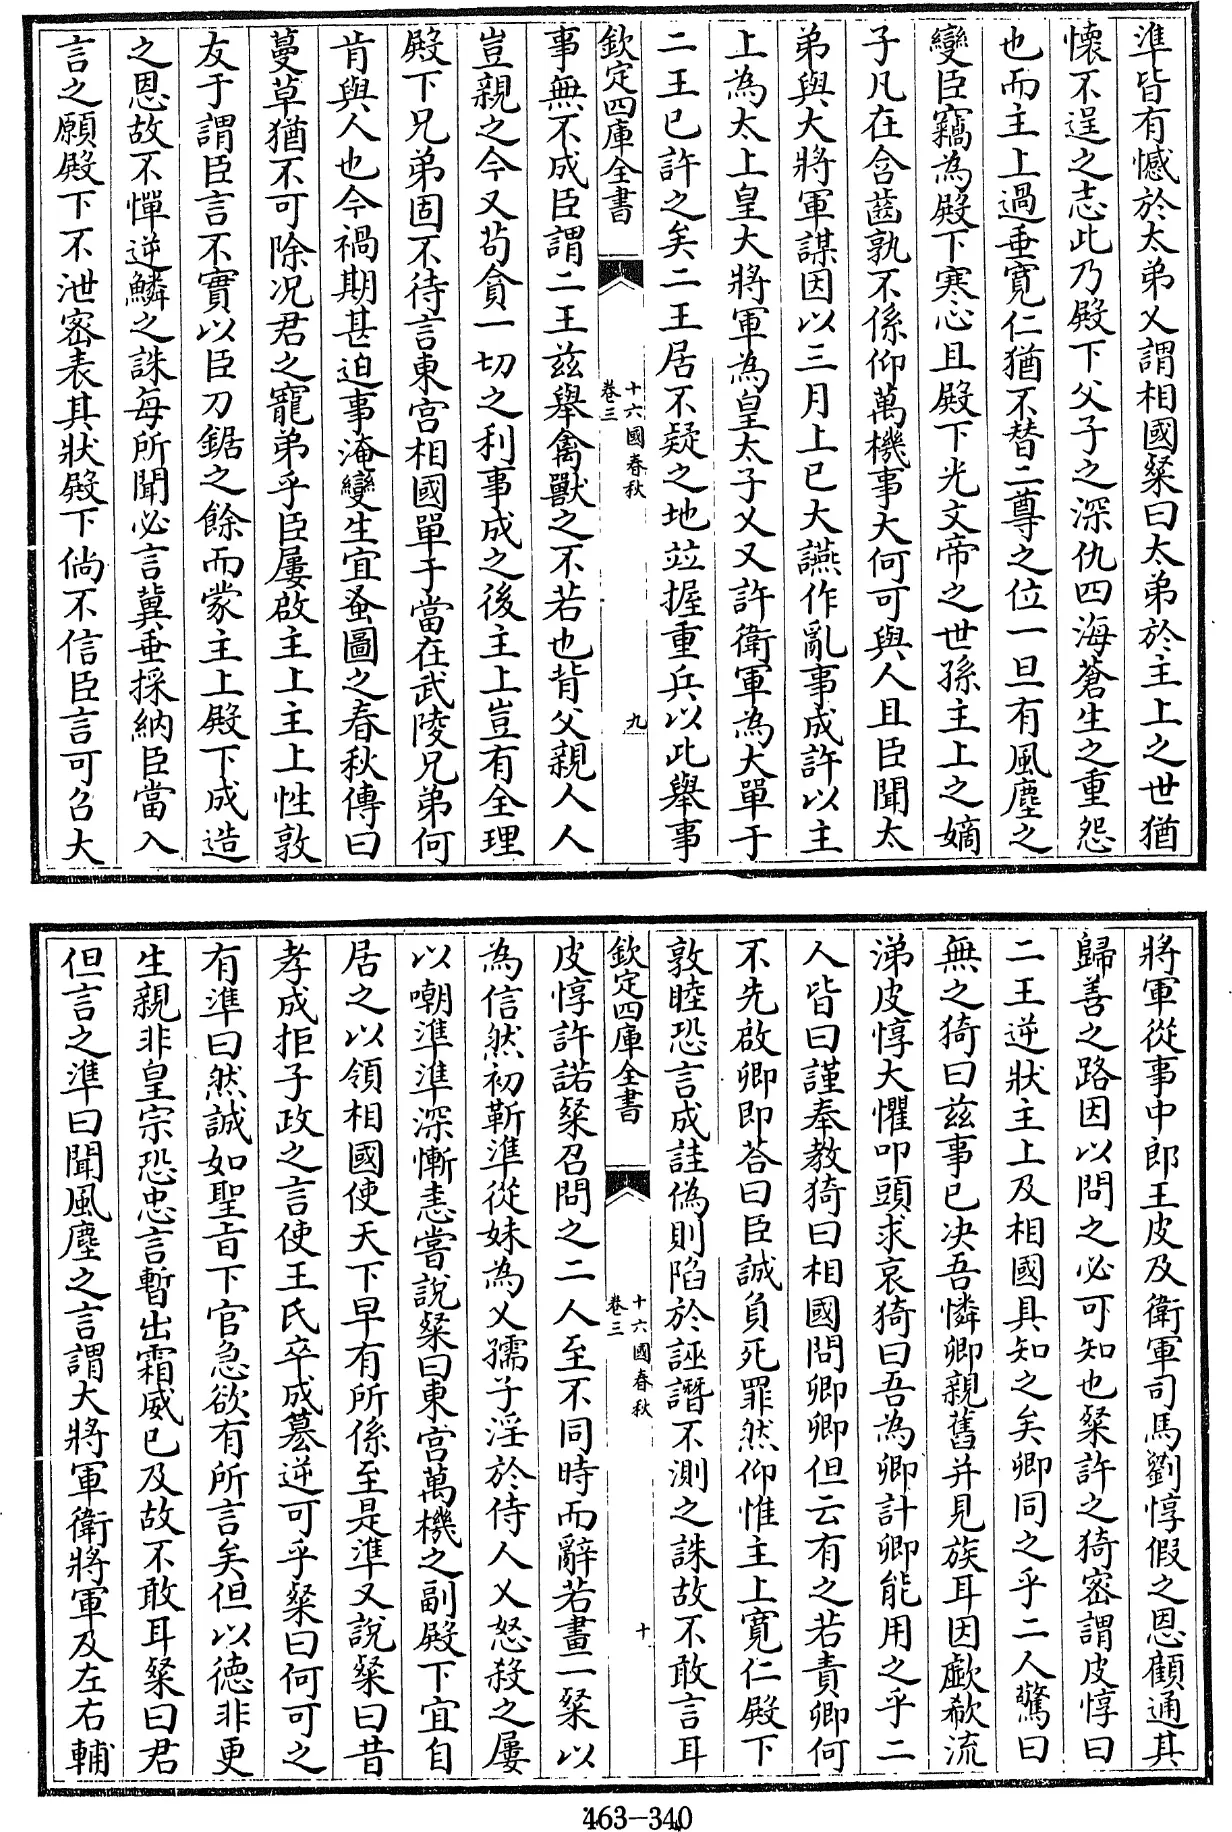 準皆有憾於太弟乂謂相國粲曰太弟於主上之世猶
懷不逞之志此乃殿下父子之深仇四海蒼生之重怨
也而主上過垂寛仁猶不替二尊之位一旦有風塵之
變臣竊為殿下寒心且殿下光文帝之世孫主上之嫡
子凡在含齒孰不係仰萬機事大何可與人且臣聞太
弟與大將軍謀因以三月上巳大讌作亂事成許以主
上為太上皇大將軍為皇太子乂又許衛軍為大單于
二王已許之矣二王居不疑之地並握重兵以此舉事
欽定四庫全書
十六國春秋
卷三
九
事無不成臣謂二王兹舉禽獸之不若也背父親人人
豈親之今又苟貪一切之利事成之後主上豈有全理
殿下兄弟固不待言東宫相國單于當在武陵兄弟何
肯與人也今禍期甚迫事淹變生宜蚤圖之春秋傳曰
蔓草猶不可除况君之寵弟乎臣屢啟主上主上性敦
友于謂臣言不實以臣刀鋸之餘而蒙主上殿下成造
之恩故不憚逆鱗之誅每所聞必言冀垂採納臣當入
言之願殿下不泄密表其狀殿下倘不信臣言可召大
將軍從事中郎王皮及衛軍司馬劉惇假之恩顧通其
歸善之路因以問之必可知也粲許之猗密謂皮惇曰
二王逆狀主上及相國具知之矣卿同之乎二人驚曰
無之猗曰兹事已决吾憐卿親舊并見族耳因歔欷流
涕皮惇大懼叩頭求哀猗曰吾為卿計卿能用之乎二
人皆曰謹奉教猗曰相國問卿卿但云有之若責卿何
不先啟卿即荅曰臣誠負死罪然仰惟主上寛仁殿下
敦睦恐言成詿偽則陷於誣譖不測之誅故不敢言耳
欽定四庫全書
十六國春秋
卷三
十
皮惇許諾粲召問之二人至不同時而辭若畫一粲以
為信然初靳準從妹為乂孺子淫於侍人乂怒殺之屢
以嘲準準深慚恚嘗說粲曰東宫萬機之副殿下宜自
居之以領相國使天下早有所係至是準又說粲曰昔
孝成拒子政之言使王氏卒成簒逆可乎粲曰何可之
有準曰然誠如聖旨下官急欲有所言矣但以徳非更
生親非皇宗恐忠言暫出霜威已及故不敢耳粲曰君
但言之準曰聞風塵之言謂大將軍衛將軍及左右輔
463-340